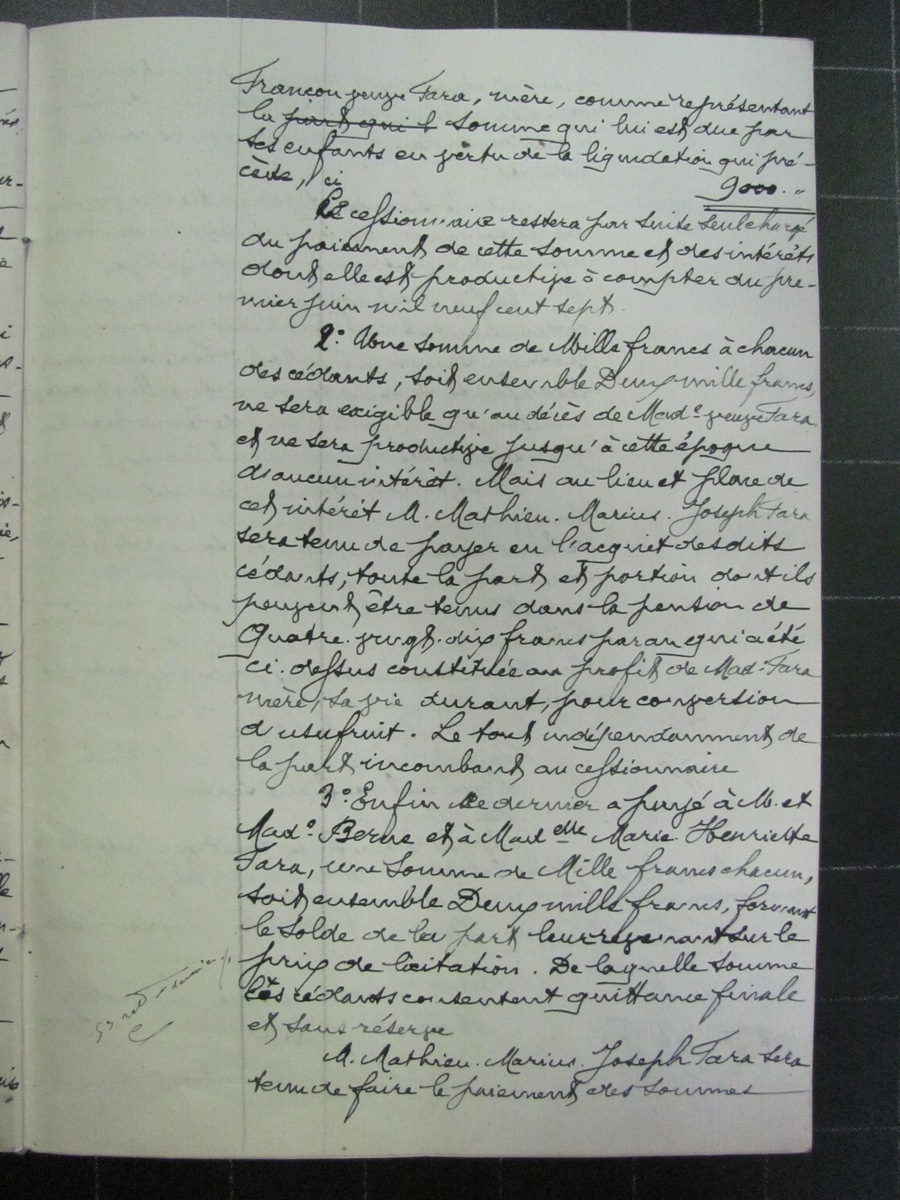 Françou veuve Fara, mère, comme représentant
la part qui l somme qui lui est due par
ses enfants en vertu de la liquidation qui pré-
cède, ci 9000 . "
Le cessionnaire restera par suite seul chargé
du paiement de cette somme et des intérêts
dont elle est productive à compter du pre-
mier juin mil neuf cent sept.
2° Une somme de Mille francs à chacun
des cédants, soit ensemble Deux mille francs,
ne sera exigible qu'au décès de Made veuve Fara
et ne sera productive jusqu'à cette époque
d'aucun intérêt. Mais au lieu et place de
cet intérêt M. Mathieu. Marius. Joseph Fara
sera tenu de payer en l'acquit desdits
cédants, toute la part et portion dont ils
peuvent être tenus dans la pension de
Quatre. vingt. dix francs par an qui a été
ci. dessus constituée au profit de Made Fara
mère, sa vie durant, pour conversion
d'usufruit. Le tout indépendamment de
la part incombant au cessionnaire
3° Enfin ce dernier a payé à M. et
Made Berne et à Madelle Marie. Henriette
Fara, une somme de Mille francs chacun,
soit ensemble Deux mille francs, formant
le solde de la part leur revenant sur le
prix de licitation. De laquelle somme
les cédants consentent quittance finale
et sans réserve
M. Mathieu. Marius. Joseph Fara sera
tenu de faire le paiement des sommes